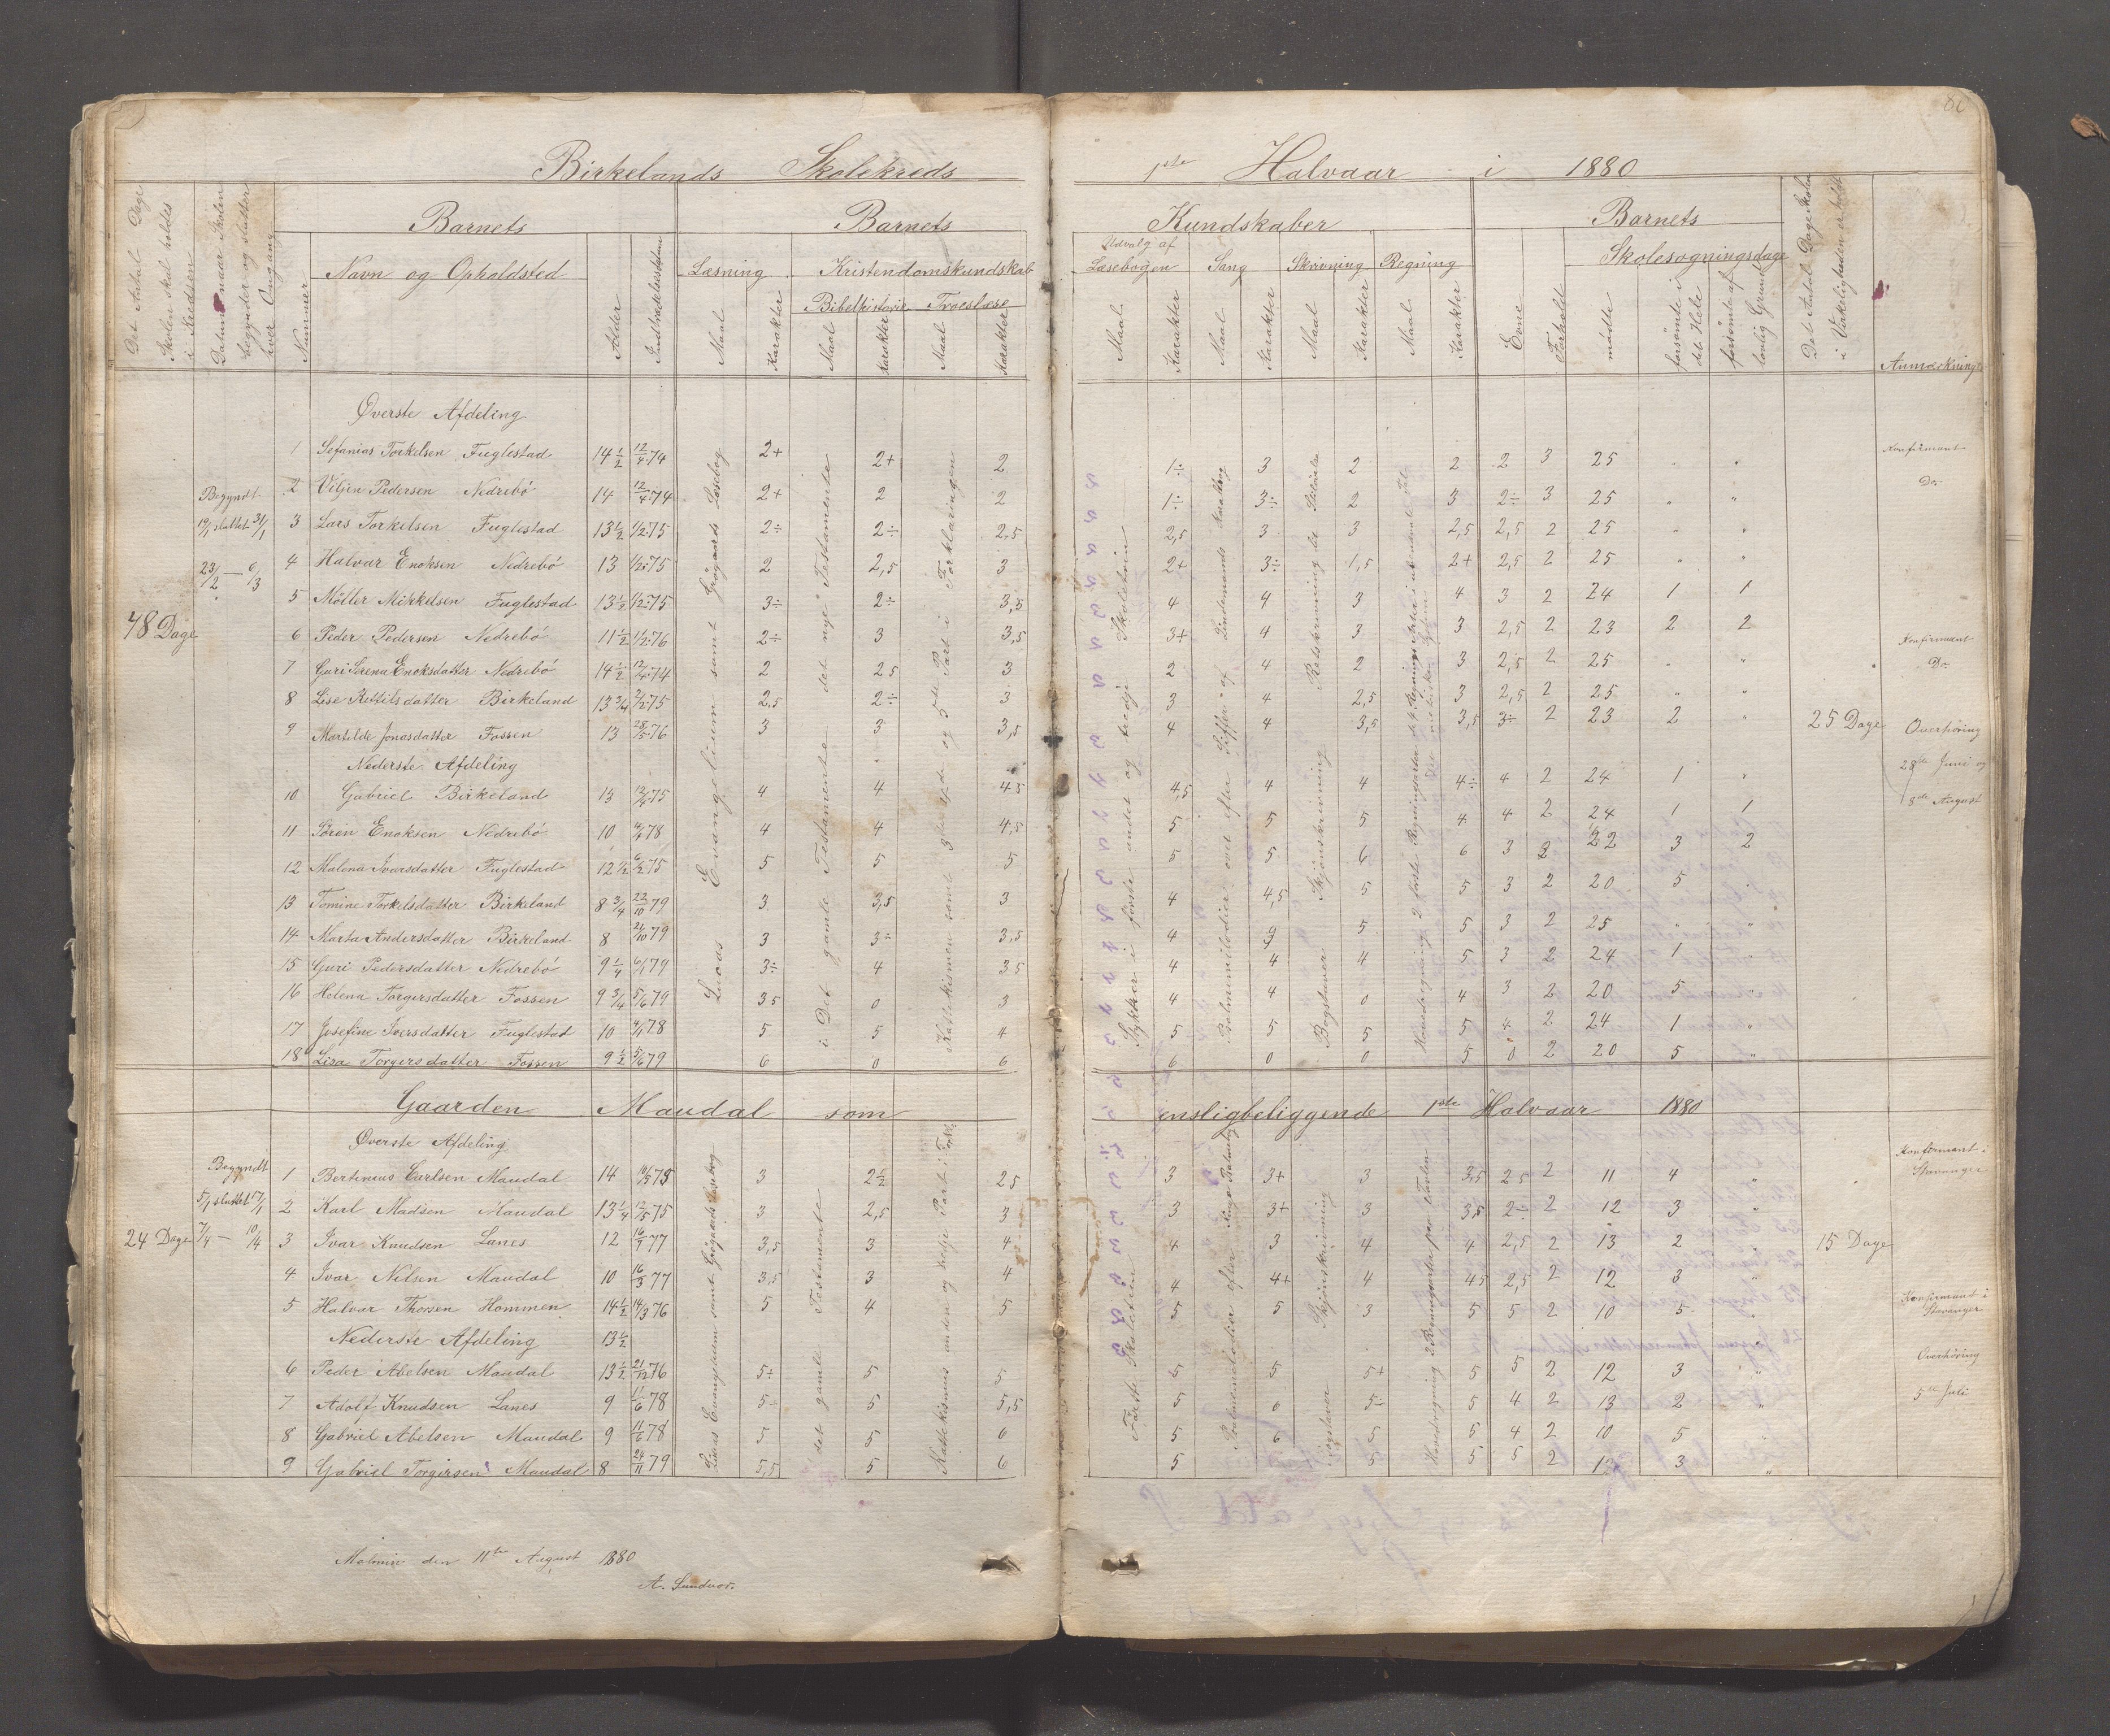 80
Birkelands Skolekreds 1ste Halvaar i 1880
Det Antal Dage Skolen skal holdes i Kredsen
Datum naar Skolen begynder og slutter hver Omgang
Nummer
Barnets
Navn og Opholdsted
Alder
Indtrædelsestiden
Barnets Kundskaber
Læsning
Maal Karakter
Kristendomskundskab
Bibelhistorie Troeslære
Maal Karakter Maal Karakter
Udvalg af Læsebogen
Maal Karakter
Sang
Maal Karakter
Skrivning
Maal Karakter
Regning
Maal Karakter
Barnets
Evne
Forholdt
Skolesøgningsdage
mødte
forsømte i det Hele
forsømte af lovlig Grund
Det Antal Dage Skolen i Virkeligheden er holdt
Anmærkninger
Øverste Afdeling
1 Sefanias Torkelsen Fuglestad 14½ 12/4 74 2+ 2+ 2 1÷ 3 2 2 2 3 25 " " Konfirmant
2 Viljen Pedersen Nedrebö 14 12/4 74 2+ 2 2 1÷ 3÷ 2 3 2÷ 3 25 " " Do
3 Lars Torkelsen Fuglestad 13½ 1/2 75 2÷ 2÷ 2,5 2,5 3 3 2,5 2,5 2 25 " "
4 Halvar Enoksen Nedrebö 13 1/2 75 2 2,5 3 2+ 3÷ 1,5 2+ 2,5 2 25 " "
5 Möller Mikkelsen Fuglestad 13½ 1/2 75 3÷ 2÷ 3,5 4 4 3 4 3 2 24 1 1
6 Peder Pedersen Nedrebö 11½ 1/2 76 2÷ 3 3,5 3+ 4 3 3 2,5 2 23 2 2
7 Guri Serena Enoksdatter Nedrebö 14½ 12/4 74 2 2,5 3 2 4 2 3 2,5 2 25 " " Konfirmant Do
8 Lise Kettilsdatter Birkeland 13¾ 2/2 75 2,5 2÷ 3 3 4 2,5 3 2,5 2 25 " "
9 Martilde Jonasdatter Fossen 13 28/5 76 3 3 3,5 4 4 3,5 3,5 3÷ 2 23 2 "
Begyndt
19/1 sluttet 31/1
23/2 — 6/3
48 Dage
25 Dage
Overhöring
28de Juni og
3die August
Nederste Afdeling
10 Gabriel Birkeland 13 12/4 75 4 4 4 5 4,5 4 4 4÷ 4 2 24 1 "
11 Sören Enoksen Nedrebö 10 78 4 4 4,5 5 5 5 4 4 2 24 1 1
12 Malena Iversdatter Fuglestad 12½ 6/2 75 5 5 5 5 5 6 6 3 2 22 3 2
13 Tomine Torkelsdatter Birkeland 8¾ 22/10 79 3 3,5 3 4 4,5 5 5 3 2 20 5 "
14 Marta Andersdatter Birkeland 8 21/10 79 3 3÷ 3,5 4 5 5 3 2 25 " "
15 Guri Pedersdatter Nedrebö 9¼ 6/1 79 3÷ 4 3 5 4 4 4 5 3 2 24 1 "
16 Helena Torgersdatter Fossen 9¾ 5/6 79 3 5 0 3 4 4 0 4 3 2 20 5 "
17 Josefine Iversdatter Fuglestad 10 78 5 5 4 5 5 5 5 4 2 24 1 "
18 Lisa Torgersdatter Fossen 9½ 5/6 79 6 0 6 6 0 0 5 0 2 20 5 "
Lucas Evangelium samt Grögaards Læsebog
i Det gamle Testamente det nye Testamente
Katekismen samt 3die 4de og 5te Part i Forklaringen
Stykker i förste andet og tredje Skoletrin
Psalmemelodier over efter Siffer af Lindemans Koralbog
Bogstaver Skjönskrivning Retskrivning
Gaarden Maudal som ensligbeliggende 1ste Halvaar 1880
Øverste Afdeling
1 Bertinius Carlsen Maudal 14 75 3 2½ 2 5 3 3+ 3 3,5 2 5 2 11 4 " Konfirmant i Stavanger
2 Karl Madsen Maudal 13¼ 12/5 75 3 2,5 3 3 3+ 3 3,5 2÷ 2 12 3 "
3 Ivar Knudsen Lanes 12 77 3,5 3 4 4 3 4 4 2,5 2 13 2 "
4 Ivar Nilsen Maudal 10 16/3 77 3,5 3 4 4 4+ 4 4 5 2,5 2 12 3 "
5 Halvar Thorsen Hommen 14½ 14/3 76 5 4 5 5 5 3 5 5 2 10 5 " Konfirmant i Stavanger
Begyndt
5/1 sluttet 17/1
7/4 — 10/4
24 Dage
15 Dage
Nederste Afdeling 13½
6 Peder Abelsen Maudal 13½ 21/12 76 5÷ 5 5 5 5 5+ 5 5 2 12 3 "
7 Adolf Knudsen Lanes 9 11/6 78 5÷ 5 5,5 5 6 5÷ 5 4 2 13 2 "
8 Gabriel Abelsen Maudal 9 11/6 78 5 5 6 5 6 5 5 4 2 10 5 "
9 Gabriel Torgirsen Maudal 8 24/11 79 5,5 5 6 5 5 5 5 2 12 3 "
Overhöring
5te Juli
Lucas Evangelium samt Grögaards Læsebog
det gamle Testamente
Katekismus anden og tredje Part i Forkl.
Förste Skoletrin
Psalmemelodier efter
Bogstaver Skjönskrivning
Malmin den 11te August 1880
A. Sundvor.